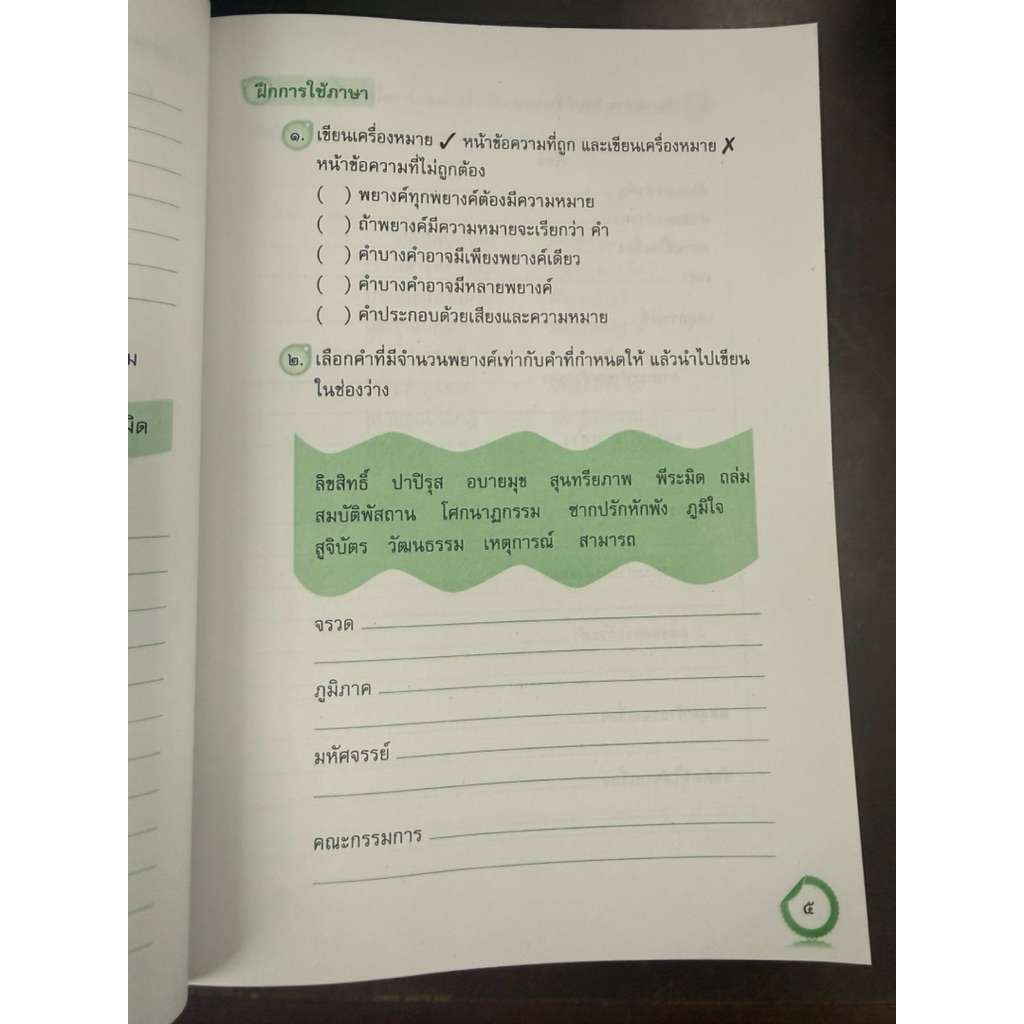 ฝึกการใช้ภาษา
๑. เขียนเครื่องหมาย ✓ หน้าข้อความที่ถูก และเขียนเครื่องหมาย ✗
หน้าข้อความที่ไม่ถูกต้อง
( ) พยางค์ทุกพยางค์ต้องมีความหมาย
( ) ถ้าพยางค์มีความหมายจะเรียกว่า คำ
( ) คำบางคำอาจมีเพียงพยางค์เดียว
( ) คำบางคำอาจมีหลายพยางค์
( ) คำประกอบด้วยเสียงและความหมาย
๒. เลือกคำที่มีจำนวนพยางค์เท่ากับคำที่กำหนดให้ แล้วนำไปเขียน
ในช่องว่าง
ลิขสิทธิ์ ปาปิรุส อบายมุข สุนทรียภาพ พีระมิด ถล่ม
สมบัติพัสถาน โศกนาฏกรรม ซากปรักหักพัง ภูมิใจ
สูจิบัตร วัฒนธรรม เหตุการณ์ สามารถ
จรวด
ภูมิภาค
มหัศจรรย์
คณะกรรมการ
๕